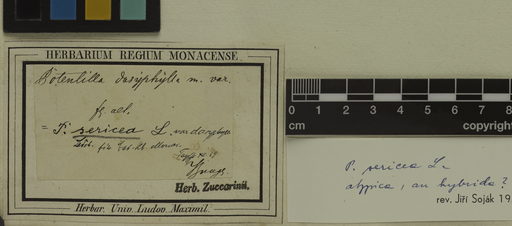 HERBARIUM REGIUM MONACENSE.
Potentilla dasyphylla m. var.
= P. sericea L. var. dasyph.
Herb. Zuccarinii.
Herbar. Univ. Ludov. Maximil.
0 1 2 3 4 5 6 7 8
cm copyright
P. sericea L.
atypica, an hybrida?
rev. Jiří Soják 19